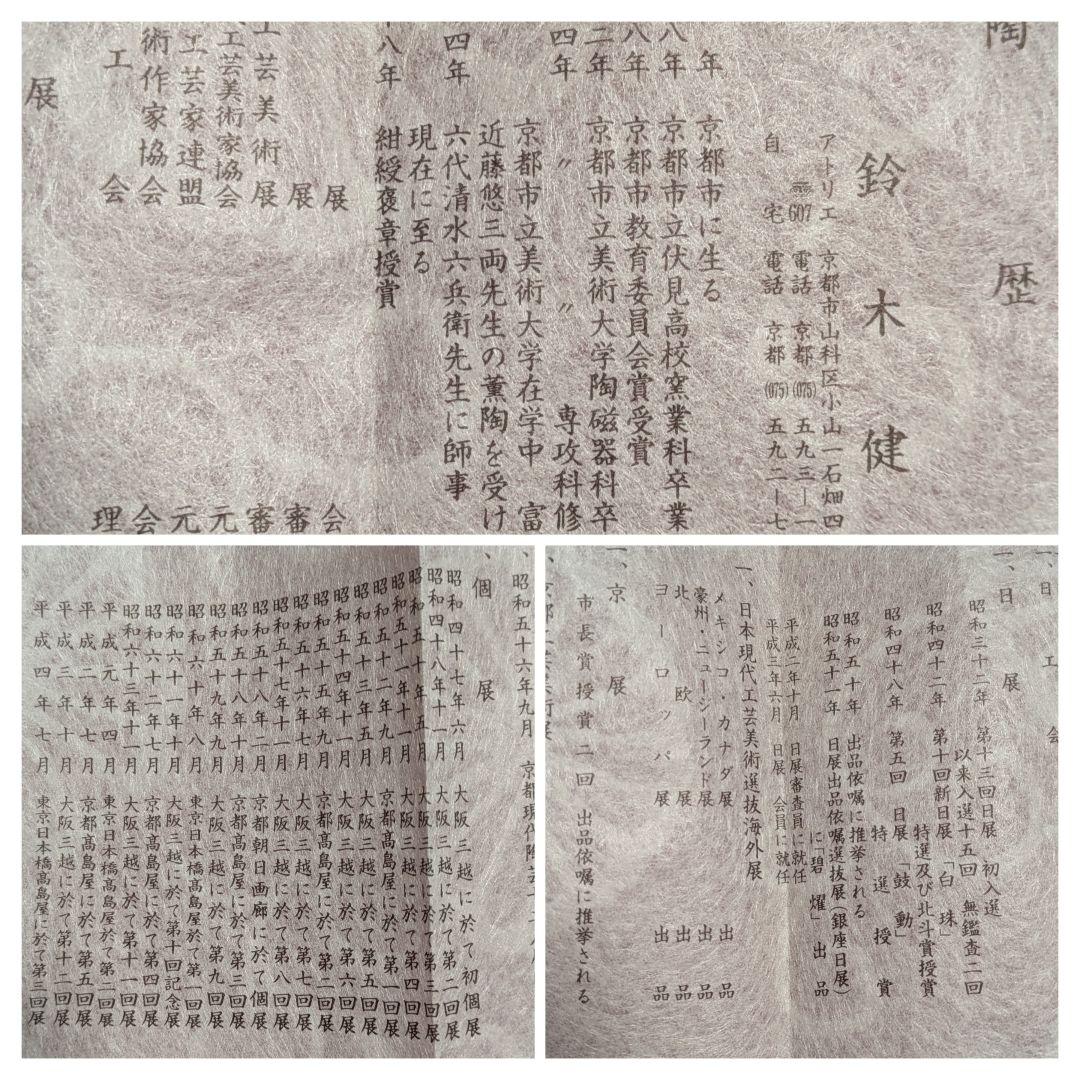 陶歴
鈴木健
アトリエ 京都市山科区小山一石畑四
〒607 電話 京都(075)五九三ー一
自宅 電話 京都(075)五九二ー七
年 京都市に生る
八年 京都市立伏見高校窯業科卒業
八年 京都市教育委員会賞受賞
二年 京都市立美術大学陶磁器科卒
四年 〃 〃 専攻科修
京都市立美術大学在学中 富
近藤悠三両先生の薫陶を受け
四年 六代清水六兵衛先生に師事
現在に至る
八年 紺綬褒章授賞
展 会
展 審
工芸美術展 審
工芸美術家協会 元
工芸家連盟 元
術作家協会 会
工会 理
展
昭和五十六年九月 京都現代陶芸
、個展
昭和四十七年六月 大阪三越に於て初個展
昭和四十八年十一月 大阪三越に於て第二回展
昭和五十年五月 大阪三越に於て第三回展
昭和五十一年十一月 大阪三越に於て第四回展
昭和五十二年九月 京都髙島屋に於て第一回展
昭和五十三年十月 大阪三越に於て第五回展
昭和五十四年十一月 大阪三越に於て第六回展
昭和五十五年九月 京都髙島屋に於て第二回展
昭和五十六年十月 大阪三越に於て第七回展
昭和五十七年十一月 大阪三越に於て第八回展
昭和五十八年二月 京都朝日画廊に於て個展
昭和五十八年十月 京都髙島屋に於て第三回展
昭和五十九年十月 大阪三越に於て第九回展
昭和六十年八月 東京日本橋髙島屋於て第一回展
昭和六十一年十月 大阪三越に於て第十回記念展
昭和六十二年七月 京都髙島屋に於て第四回展
昭和六十三年十一月 大阪三越に於て第十一回展
平成元年四月 東京日本橋髙島屋に於て第二回展
平成二年七月 京都髙島屋に於て第五回展
平成三年十月 大阪三越に於て第十二回展
平成四年七月 東京日本橋髙島屋に於て第三回展
一、日工会
一、日展
昭和三十二年 第十三回日展 初入選
以来入選十五回 無鑑査二回
昭和四十二年 第十回新日展「白珠」
特選及び北斗賞授賞
昭和四十八年 第五回日展「鼓動」
特選授賞
昭和五十年 出品依嘱に推挙される
昭和五十一年 日展出品依嘱選抜展(銀座日展)
に「碧燿」出品
平成二年十月 日展審査員に就任
平成三年六月 日展会員に就任
一、日本現代工芸美術選抜海外展
メキシコ・カナダ展 出品
豪州・ニュージーランド展 出品
北欧展 出品
ヨーロッパ展 出品
一、京展
市長賞授賞二回 出品依嘱に推挙される